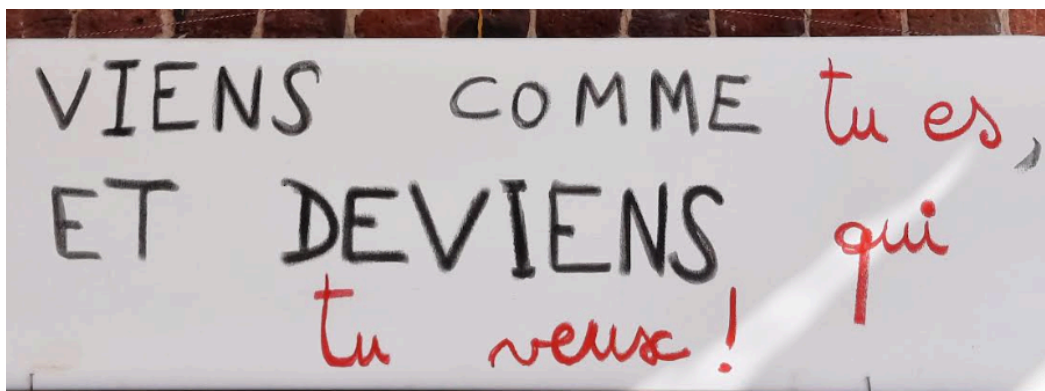 VIENS COMME tu es,
ET DEVIENS qui
tu veux !